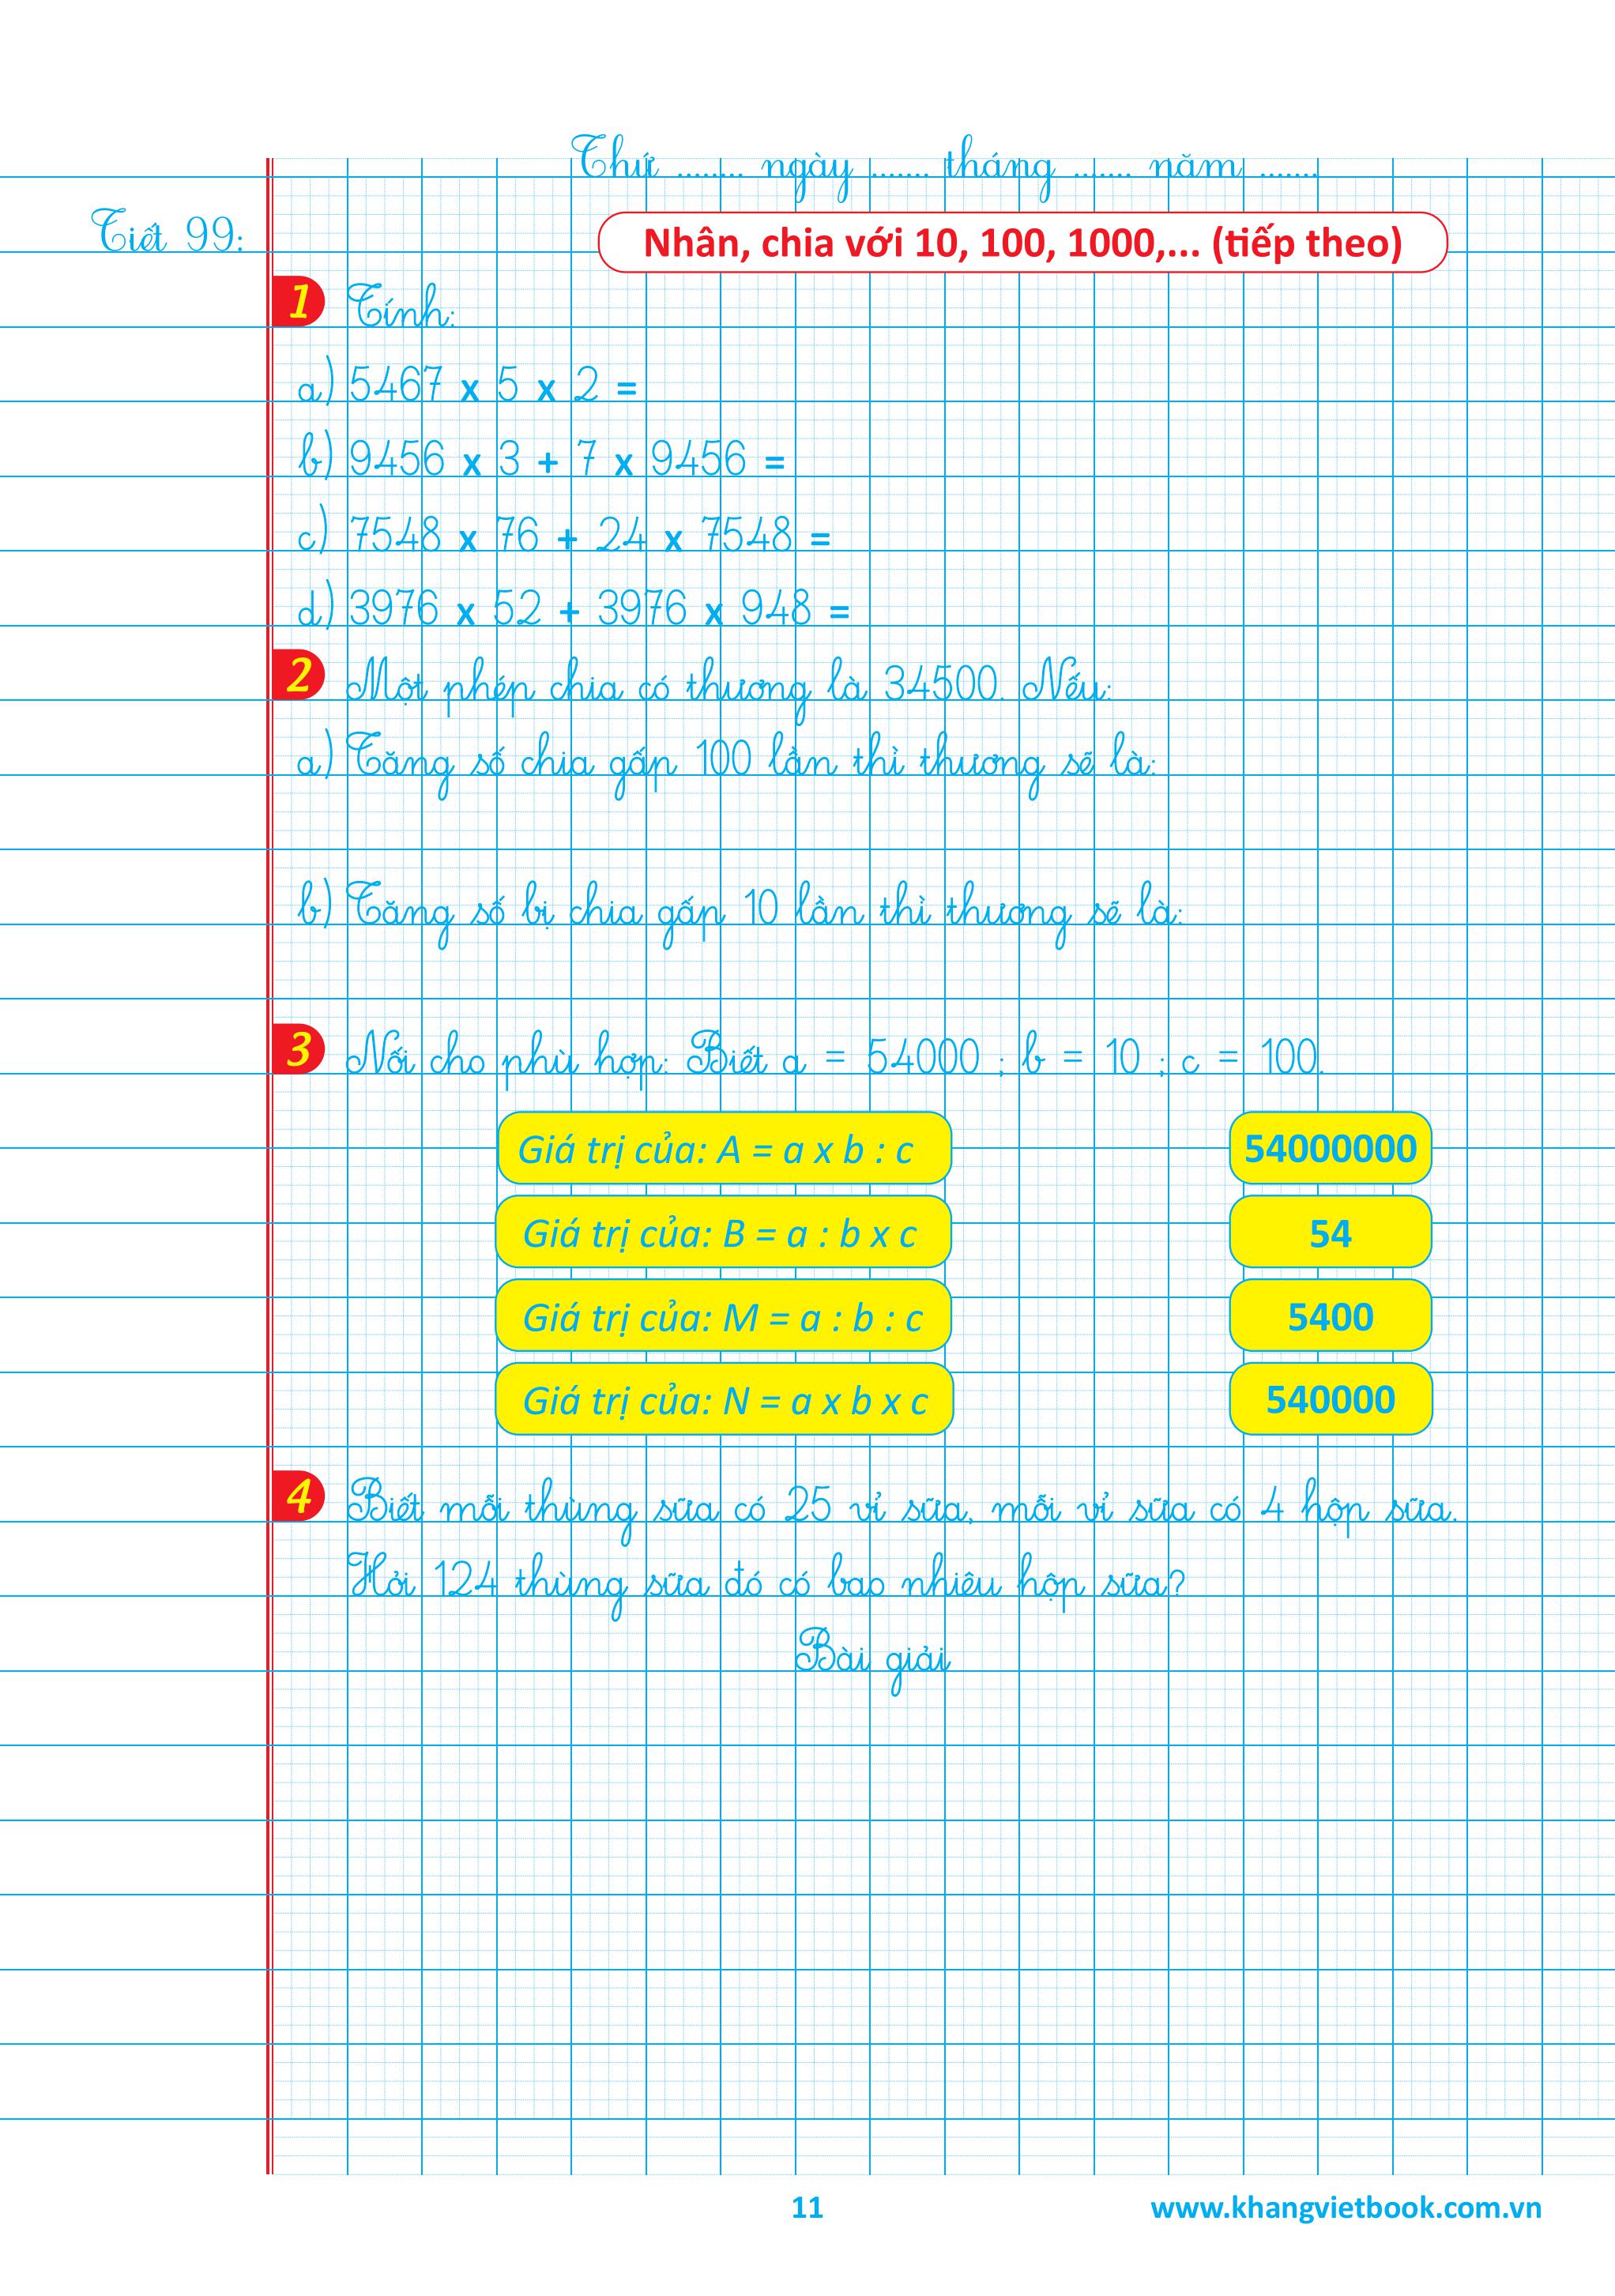 Thứ ........ ngày ....... tháng ....... năm .......
Tiết 99:
Nhân, chia với 10, 100, 1000,... (tiếp theo)
1 Tính:
a) 5467 x 5 x 2 =
b) 9456 x 3 + 7 x 9456 =
c) 7548 x 76 + 24 x 7548 =
d) 3976 x 52 + 3976 x 948 =
2 Một phép chia có thương là 34500. Nếu:
a) Tăng số chia gấp 100 lần thì thương sẽ là:
b) Tăng số bị chia gấp 10 lần thì thương sẽ là:
3 Nối cho phù hợp: Biết a = 54000 ; b = 10 ; c = 100.
Giá trị của: A = a x b : c 54000000
Giá trị của: B = a : b x c 54
Giá trị của: M = a : b : c 5400
Giá trị của: N = a x b x c 540000
4 Biết mỗi thùng sữa có 25 vỉ sữa, mỗi vỉ sữa có 4 hộp sữa.
Hỏi 124 thùng sữa đó có bao nhiêu hộp sữa?
Bài giải
11 www.khangvietbook.com.vn